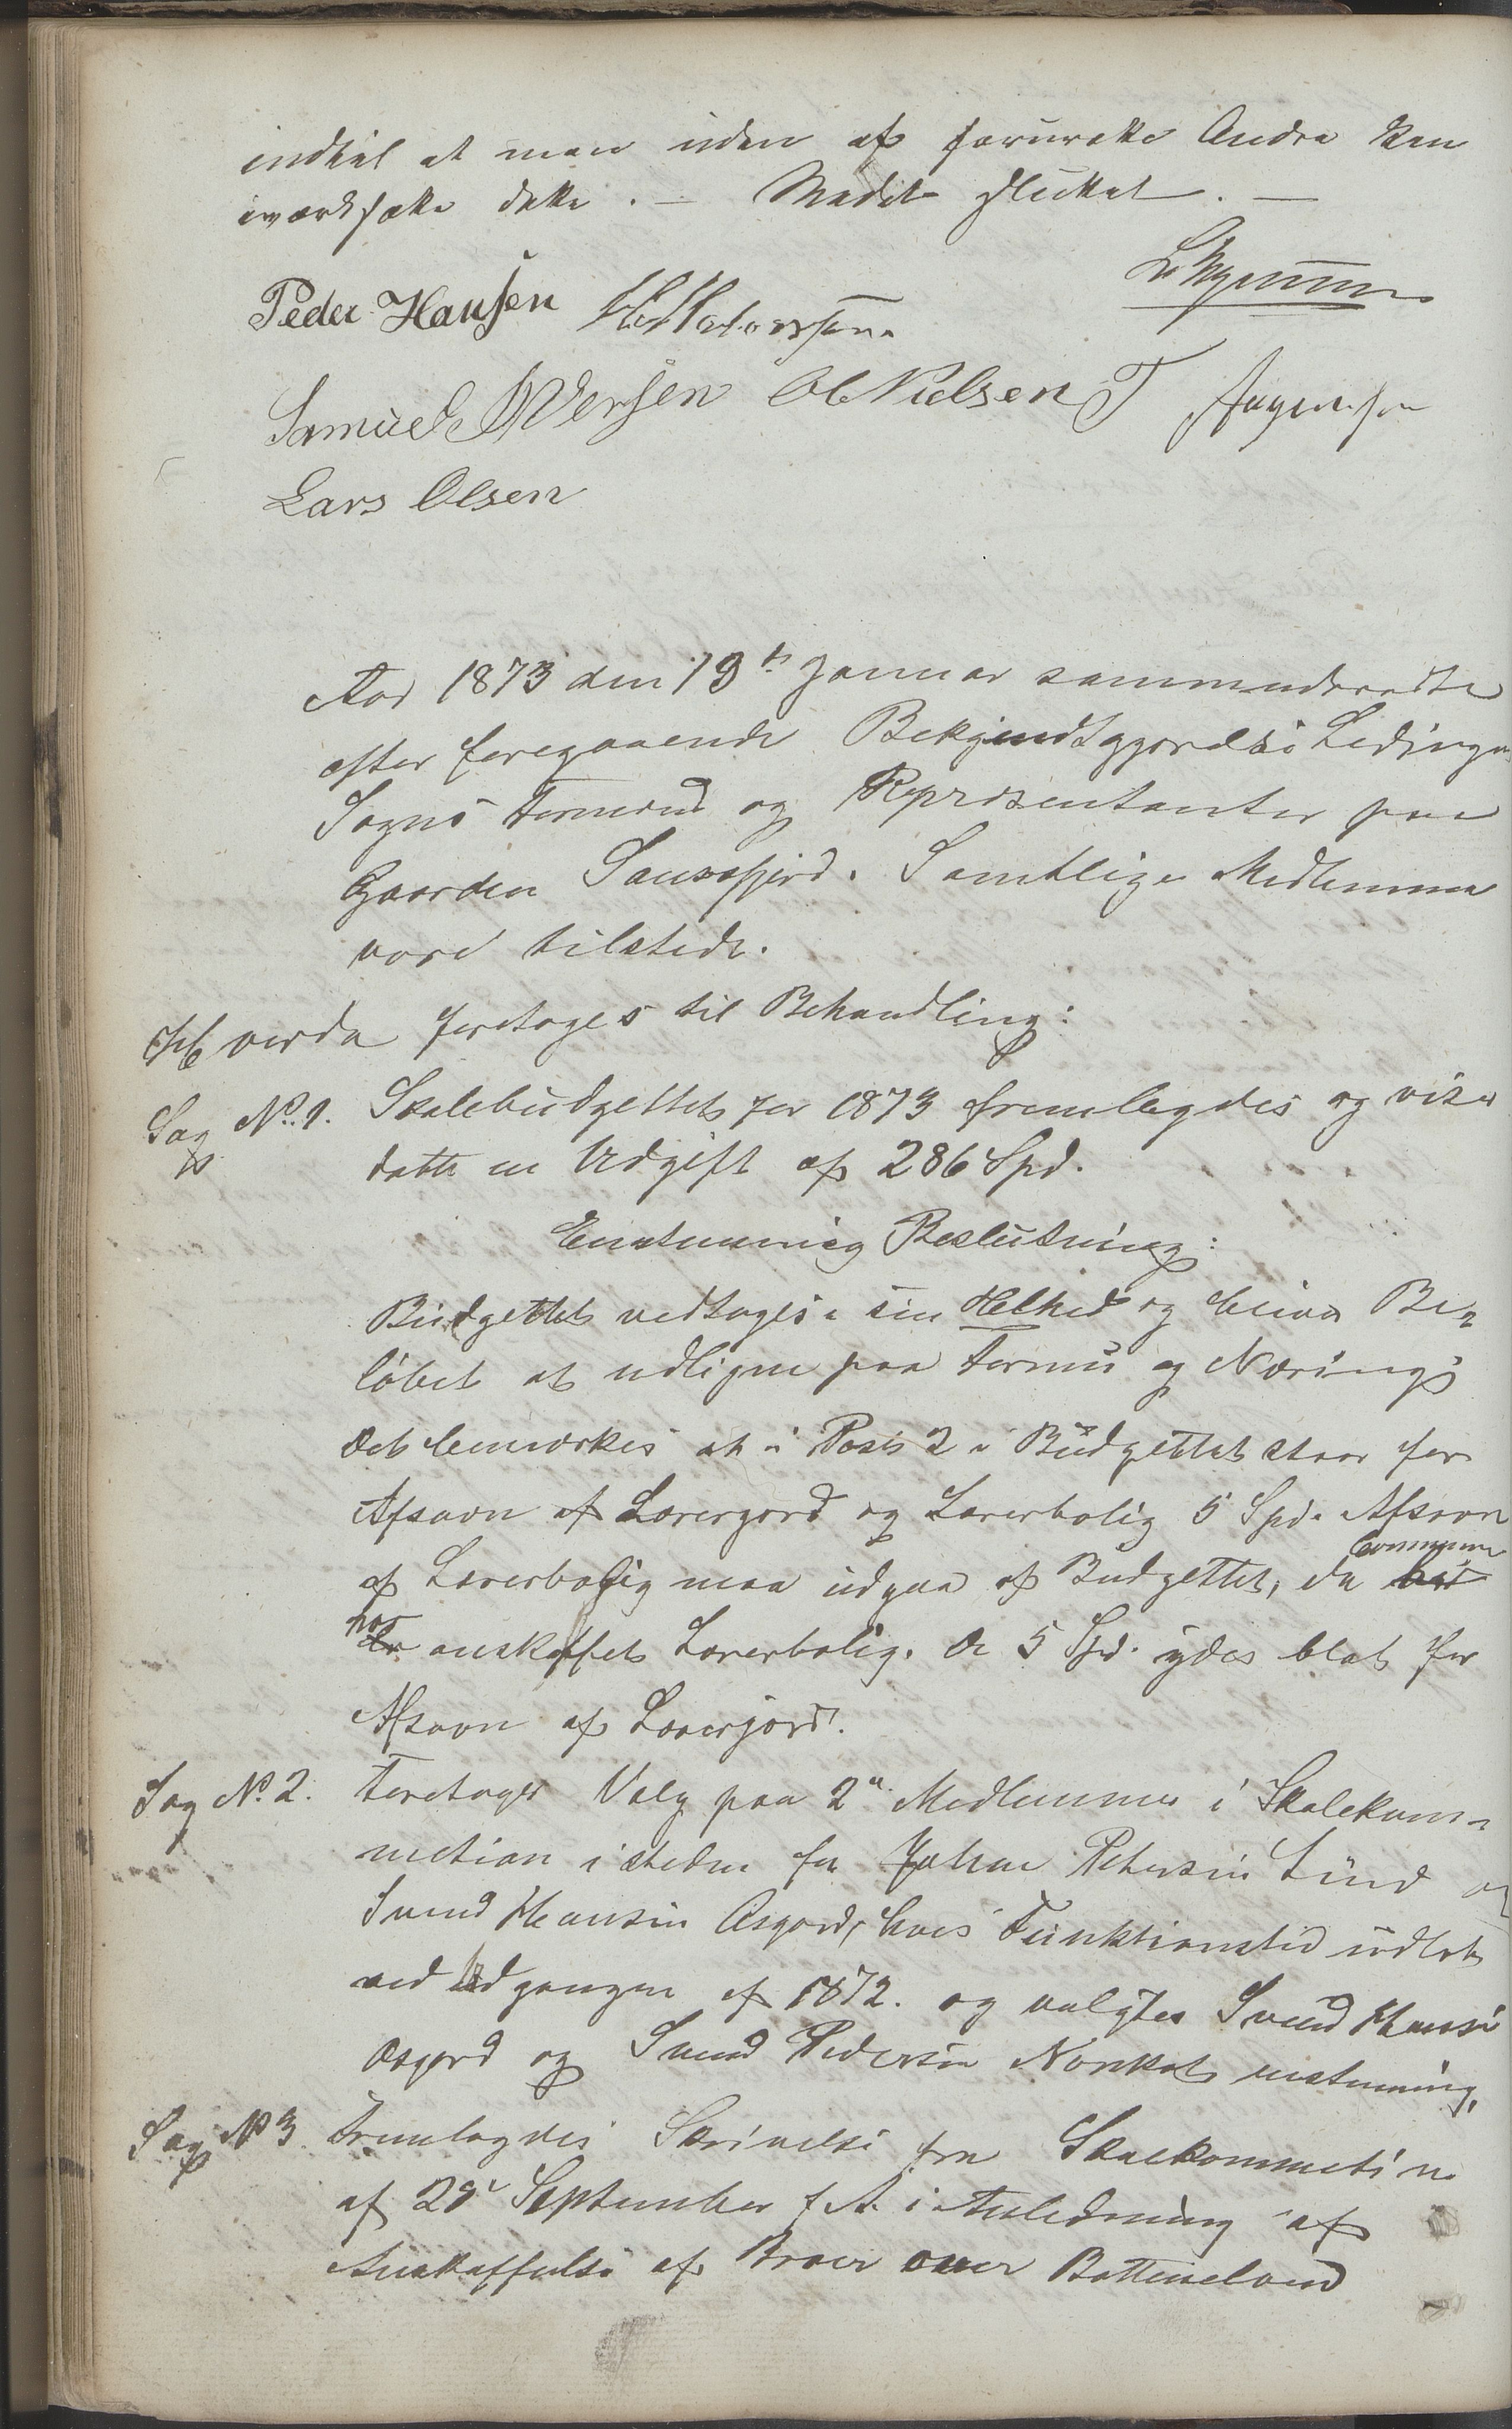 indtil at man uden at forurette Andre kan
iværksætte dette. – Mødet sluttet. –
Peder Hansen
Samuel Iversen Ol Nielsen T Jørgensen
Lars Olsen
Aar 1873 den 13de Januar sammentraadte
efter foregaaende Bekjendtgjørelse Lødingens
Sogns Formænd og Repræsentanter paa
Gaarden Saursfjord. Samtlige Medlemmer
vare tilstede.
Hvorda foretoges til Behandling:
Sag No. 1. Skolebudgettet for 1873 fremlagdes og viser
dette en Udgift af 286 Spd.
Enstemmig Beslutning:
Budgettet vedtages i sin Helhed og bliver Be-
løbet at udligne paa Formue og Næring;
Det bemærkes at i Post 2 i Budgettet staar for
Afsavn af Lærerjord og Lærerbolig 5 Spd. Afsavn
Commune
af Lærerbolig maa udgaa af Budgettet, da
har
er anskaffet Lærerbolig. De 5 Spd. ydes blot for
Afsavn af Lærerjord.
Sag No. 2. Foretoges Valg paa 2de Medlemmer i Skolekom-
mission isteden for Johan Petersen Lund og
Svend Hansen Asgord, hvis Funktionstid udløb
ved Udgangen af 1872. og valgtes Svend Hansen
Asgord og Svend Pedersen Norkot enstemmig,
Sag No 3. Fremlagdes Skrivelse fra Skolekommission
af 29de September f. A. i Anledning af
Anskaffelse af Broer over Botteneloend